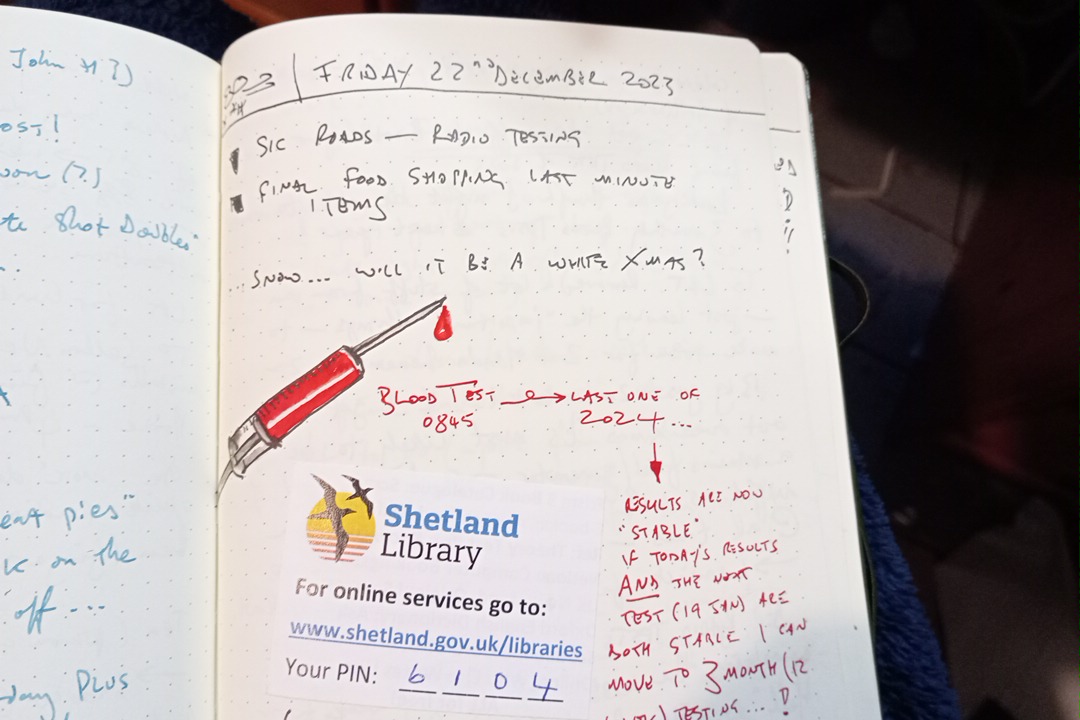 John H ?)
ost!
oon (?)
te Shot Doubles"
eat pies"
k on the
off ...
day Plus
FRIDAY 22nd DECEMBER 2023
SIC ROADS — RADIO TESTING
FINAL FOOD SHOPPING LAST MINUTE
ITEMS
...SNOW... WILL IT BE A WHITE XMAS?
BLOOD TEST → LAST ONE OF
0845 2024...
RESULTS ARE NOW
"STABLE"
IF TODAY'S RESULTS
AND THE NEXT
TEST (19 JAN) ARE
BOTH STABLE I CAN
MOVE TO 3 MONTH (12
TESTING... !
Shetland
Library
For online services go to:
www.shetland.gov.uk/libraries
Your PIN: 6 1 0 4